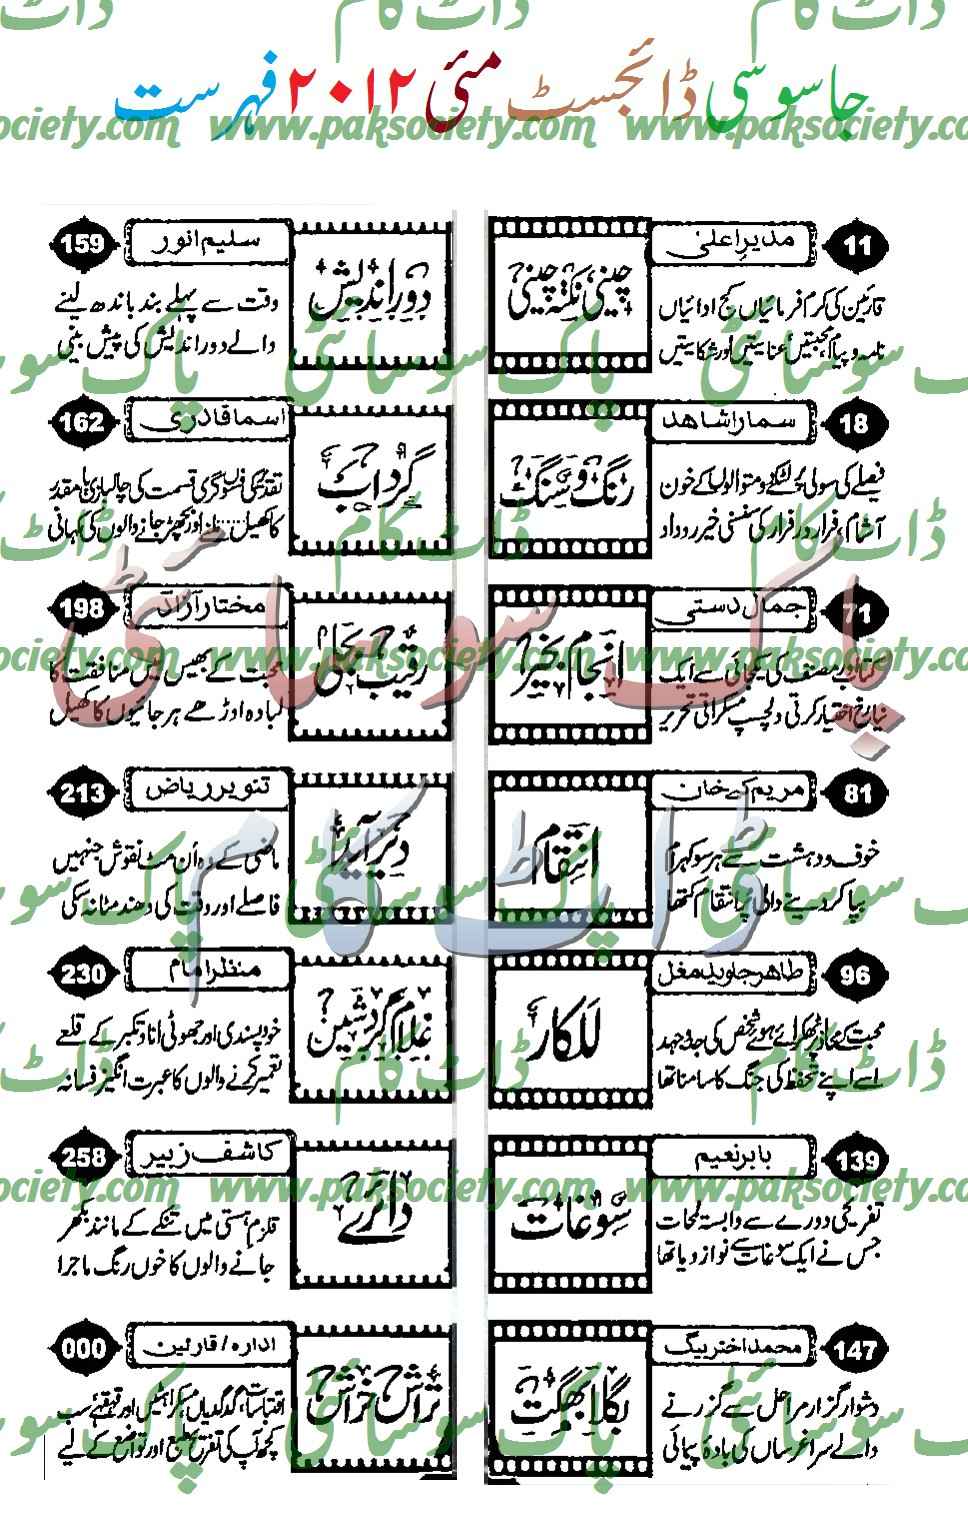 جاسوسی ڈائجسٹ مئی ۲۰۱۲ فہرست
www.paksociety.com
پاک سوسائٹی
ڈاٹ کام
11
مدیرِاعلیٰ
چینی نکتہ چینی
قارئین کی کرم فرمائیاں کج ادائیاں
نامہ و پیام، محبتیں عنایتیں اور شکایتیں
18
سماراشاھد
رنگ و سنگ
فیصلے کی سولی پر لٹکے ومتوالوں کے خون
آشام، فرار در فرار کی سنسنی خیز روداد
71
جمال دستی
انجام بخیر
کتاب مصنف کی یکجائی سے ایک
نیا رخ اختیار کرتی دلچسپ مسکراتی تحریر
81
مریم کے خان
انتقام
خوف و دہشت سے ہر سو کہرام
بپا کر دینے والی پر انتقام کتھا
96
طاہر جاوید مغل
للکار
محبت کے محاذ پر ٹھکرائے ہوئے شخص کی جدوجہد
اسے اپنے تحفظ کی جنگ کا سامنا تھا
139
بابر نعیم
سوغات
تفریحی دورے سے وابستہ لمحات
جس نے ایک سوغات سے نواز دیا تھا
147
محمد اختر بیگ
بگلا بھگت
دشوار گزار مراحل سے گزرنے
والے سراغرساں کی بادۂ پیمائی
159
سلیم انور
دور اندیش
وقت سے پہلے بند باندھ لینے
والے دور اندیش کی پیش بینی
162
اسماقادری
گرداب
تقدیر کی فسوں گری قسمت کی چالبازی، مقدر
کا کھیل.... ملنے اور بچھڑ جانے والوں کی کہانی
198
مختار آزاد
رقیب بجلی
محبت کے بھیس میں منافقت کا
لبادہ اوڑھے ہرجائیوں کا کھیل
213
تنویر ریاض
دیر آید
ماضی کے وہ اَن مٹ نقوش جنہیں
فاصلے اور وقت کی دھند مٹا نہ سکی
230
منظر امام
غلام گردشیں
خود پسندی اور جھوٹی انا و تکبر کے قلعے
تعمیر کرنے والوں کا عبرت انگیز فسانہ
258
کاشف زبیر
دائرے
قلزم ہستی میں تنکے کے مانند بکھر
جانے والوں کا خوں رنگ ماجرا
000
ادارہ/قارئین
تراش خراش
اقتباسات، گدگدیاں، مسکراہٹیں اور قہقہے سب
کچھ آپ کی تفریح طبع اور تواضع کے لیے